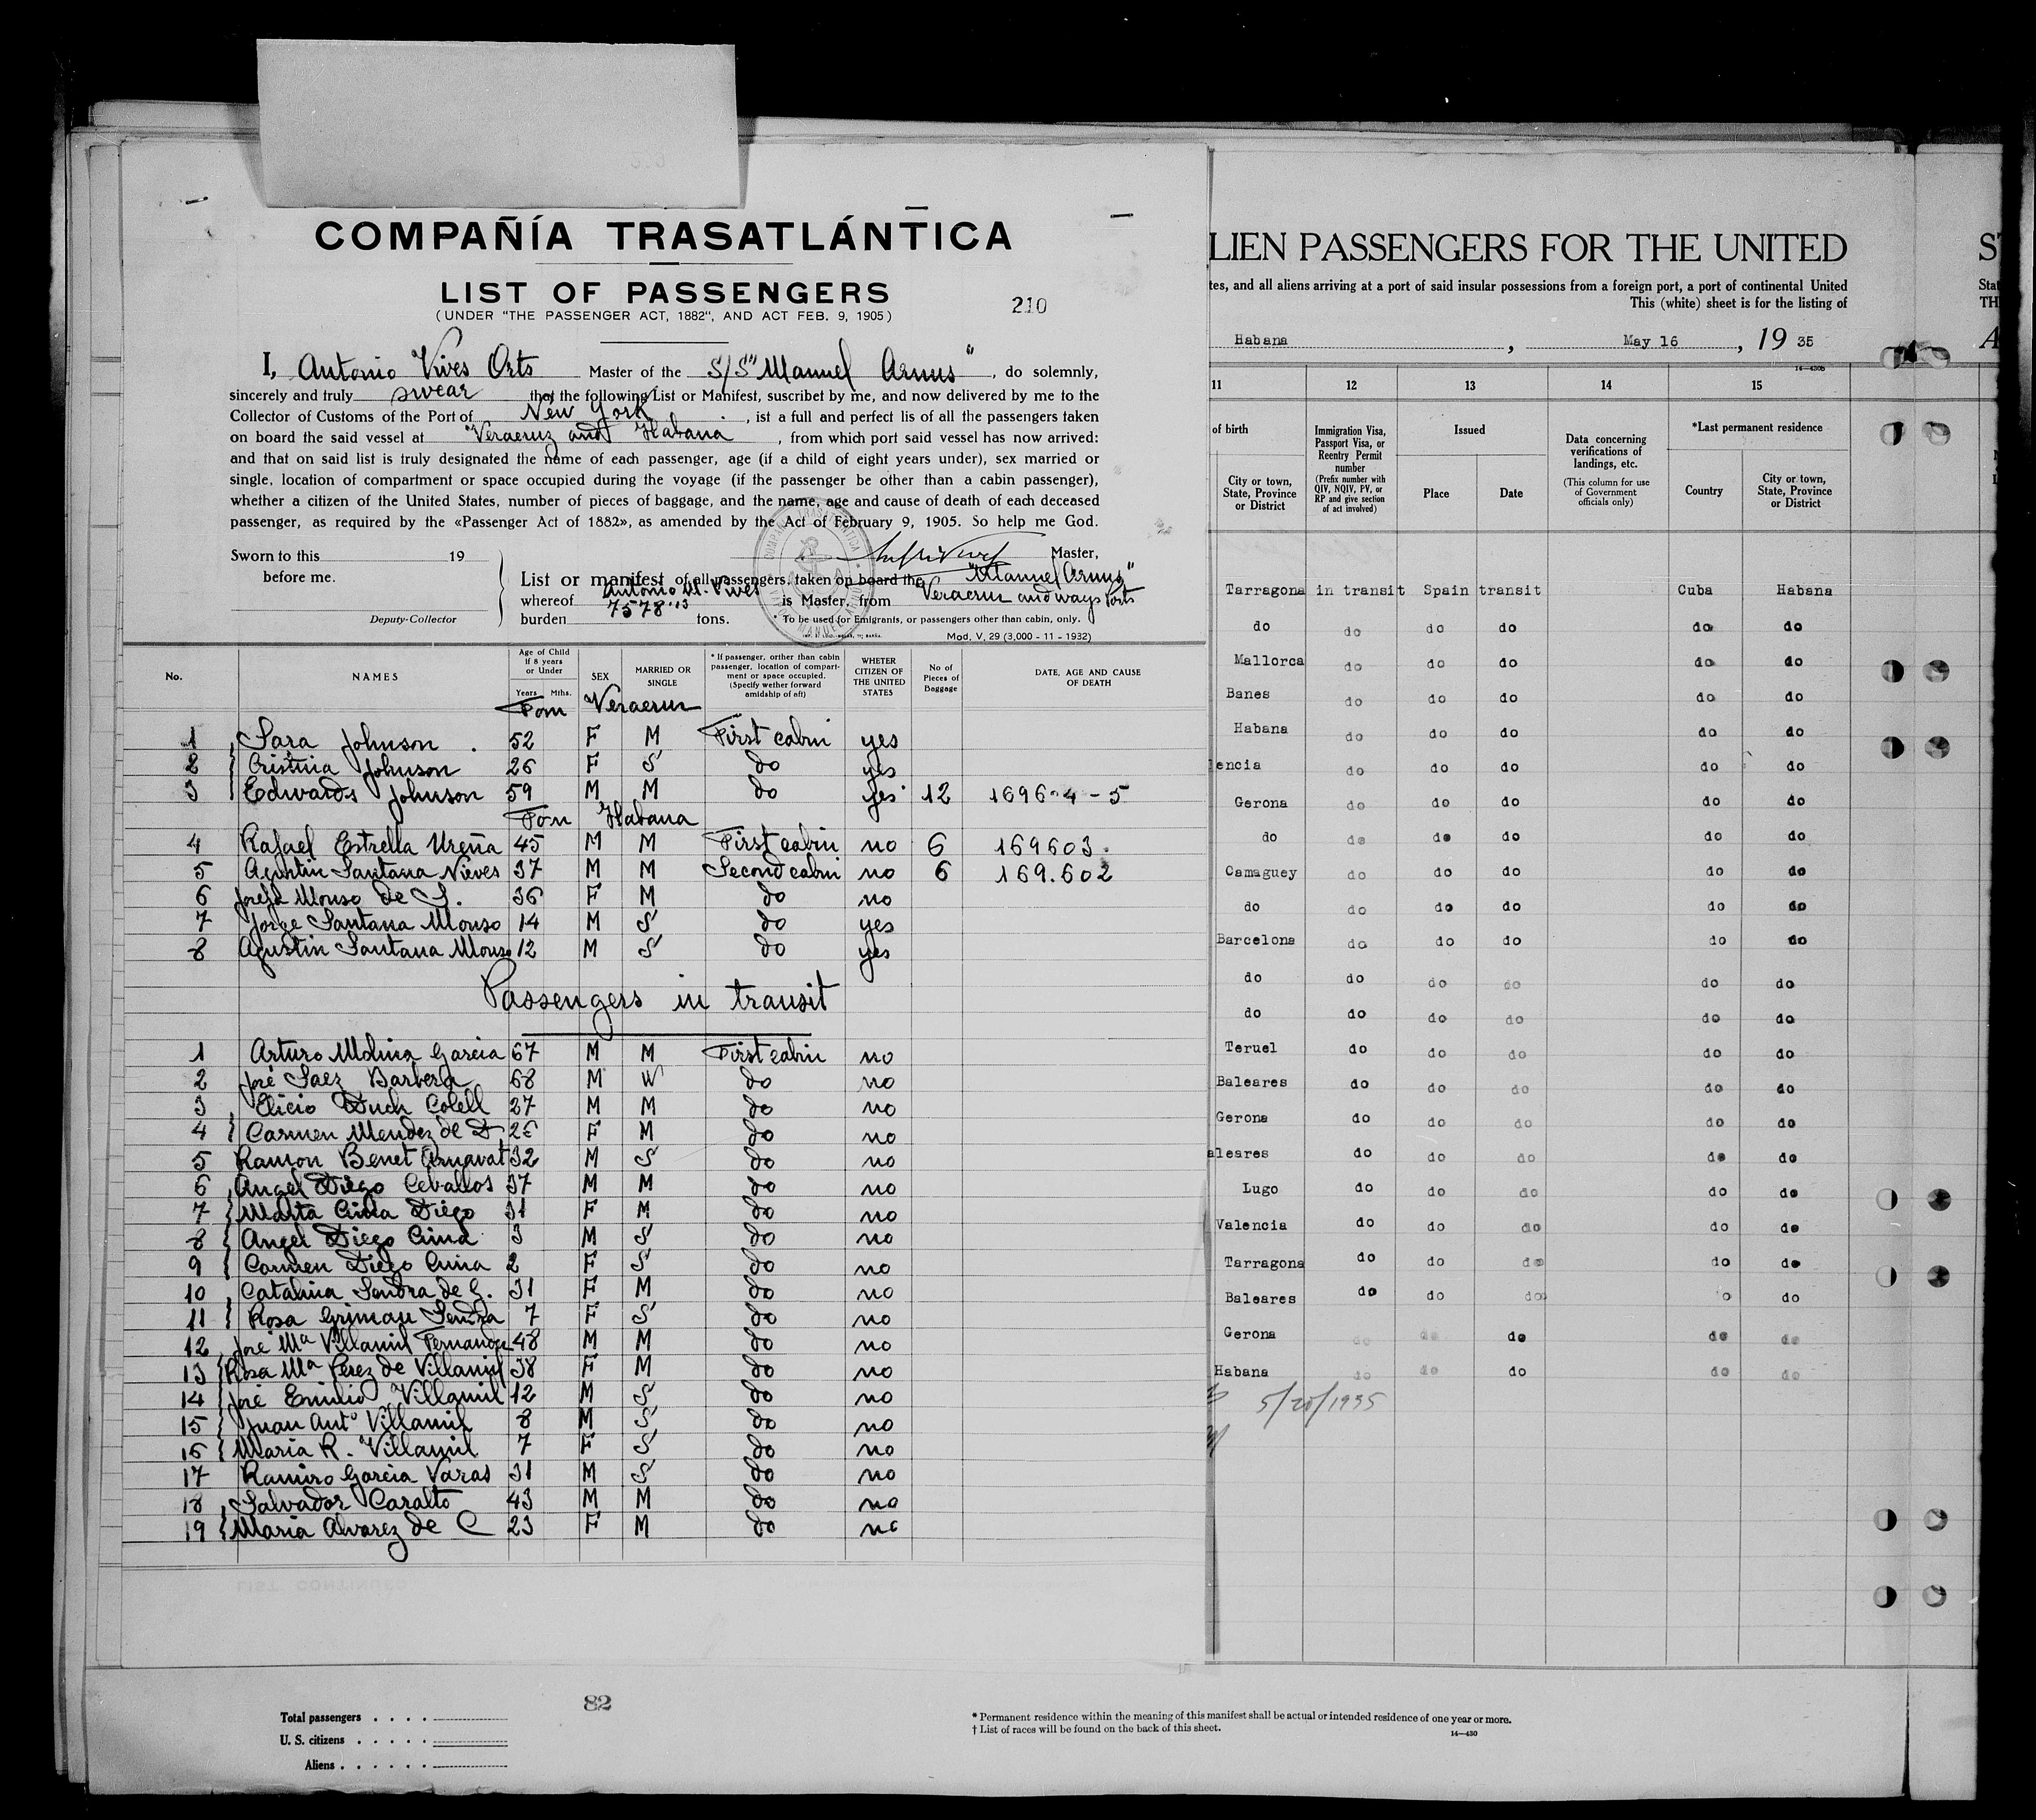 COMPAÑÍA TRASATLÁNTICA
LIST OF PASSENGERS
(UNDER "THE PASSENGER ACT, 1882", AND ACT FEB. 9, 1905)
210
I, Antonio Vives Orts Master of the S/S "Manuel Arnus", do solemnly,
sincerely and truly swear that the following List or Manifest, suscribet by me, and now delivered by me to the
Collector of Customs of the Port of New York, ist a full and perfect lis of all the passengers taken
on board the said vessel at Veracruz and Habana, from which port said vessel has now arrived:
and that on said list is truly designated the name of each passenger, age (if a child of eight years under), sex married or
single, location of compartment or space occupied during the voyage (if the passenger be other than a cabin passenger),
whether a citizen of the United States, number of pieces of baggage, and the name, age and cause of death of each deceased
passenger, as required by the «Passenger Act of 1882», as amended by the Act of February 9, 1905. So help me God.
Sworn to this 19
before me.
Deputy-Collector
Master,
List or manifest of all passengers, taken on board the "Manuel Arnus"
whereof Antonio M. Vives is Master, from Veracruz and ways Ports
burden 7578'13 tons.
* To be used for Emigrants, or passengers other than cabin, only.
Mod. V, 29 (3,000 - 11 - 1932)
No. NAMES Age of Child if 8 years or Under Years Mths. SEX MARRIED OR SINGLE * If passenger, orther than cabin passenger, location of compartment or space occupied. (Specify wether forward amidship of aft) WHETER CITIZEN OF THE UNITED STATES No of Pieces of Baggage DATE, AGE AND CAUSE OF DEATH
From Veracruz
1 Sara Johnson 52 F M First cabin yes
2 Cristina Johnson 26 F S do yes
3 Edwards Johnson 59 M M do yes 12 169604-5
From Habana
4 Rafael Estrella Ureña 45 M M First cabin no 6 169603
5 Agustin Santana Nieves 37 M M Second cabin no 6 169.602
6 Josefa Alonso de S. 36 F M do no
7 Jorge Santana Alonso 14 M S do yes
8 Agustin Santana Alonso 12 M S do yes
Passengers in transit
1 Arturo Molina Garcia 67 M M First cabin no
2 José Saez Barbera 68 M W do no
3 Elicio Duch Colell 27 M M do no
4 Carmen Mendez de D. 26 F M do no
5 Ramon Benet Arnavat 32 M S do no
6 Angel Diego Ceballos 37 M M do no
7 Marta Cima Diego 31 F M do no
8 Angel Diego Cima 3 M S do no
9 Carmen Diego Cima 2 F S do no
10 Catalina Sendra de G. 31 F M do no
11 Rosa Grimau Sendra 7 F S do no
12 José Mª Villamil Fernandez 48 M M do no
13 Rosa Mª Perez de Villamil 38 F M do no
14 José Emilio Villamil 12 M S do no
15 Juan Antº Villamil 8 M S do no
16 Maria R. Villamil 7 F S do no
17 Ramiro Garcia Varas 31 M S do no
18 Salvador Caralto 43 M M do no
19 Maria Alvarez de C 23 F M do no
Total passengers
U. S. citizens
Aliens
82
LIEN PASSENGERS FOR THE UNITED
tes, and all aliens arriving at a port of said insular possessions from a foreign port, a port of continental United
This (white) sheet is for the listing of
Habana, May 16, 19 35
14—430b
11 12 13 14 15
of birth City or town, State, Province or District
Immigration Visa, Passport Visa, or Reentry Permit number (Prefix number with QIV, NQIV, PV, or RP and give section of act involved)
Issued Place Date
Data concerning verifications of landings, etc. (This column for use of Government officials only)
*Last permanent residence Country City or town, State, Province or District
Tarragona in transit Spain transit Cuba Habana
do do do do do do
Mallorca do do do do do
Banes do do do do do
Habana do do do do do
lencia do do do do do
Gerona do do do do do
do do do do do do
Camaguey do do do do do
do do do do do do
Barcelona do do do do do
do do do do do do
do do do do do do
Teruel do do do do do
Baleares do do do do do
Gerona do do do do do
aleares do do do do do
Lugo do do do do do
Valencia do do do do do
Tarragona do do do do do
Baleares do do do o do
Gerona do do do do do
Habana do do do do do
5/20/1935
* Permanent residence within the meaning of this manifest shall be actual or intended residence of one year or more.
† List of races will be found on the back of this sheet.
14—430
S
Stat
TH
A